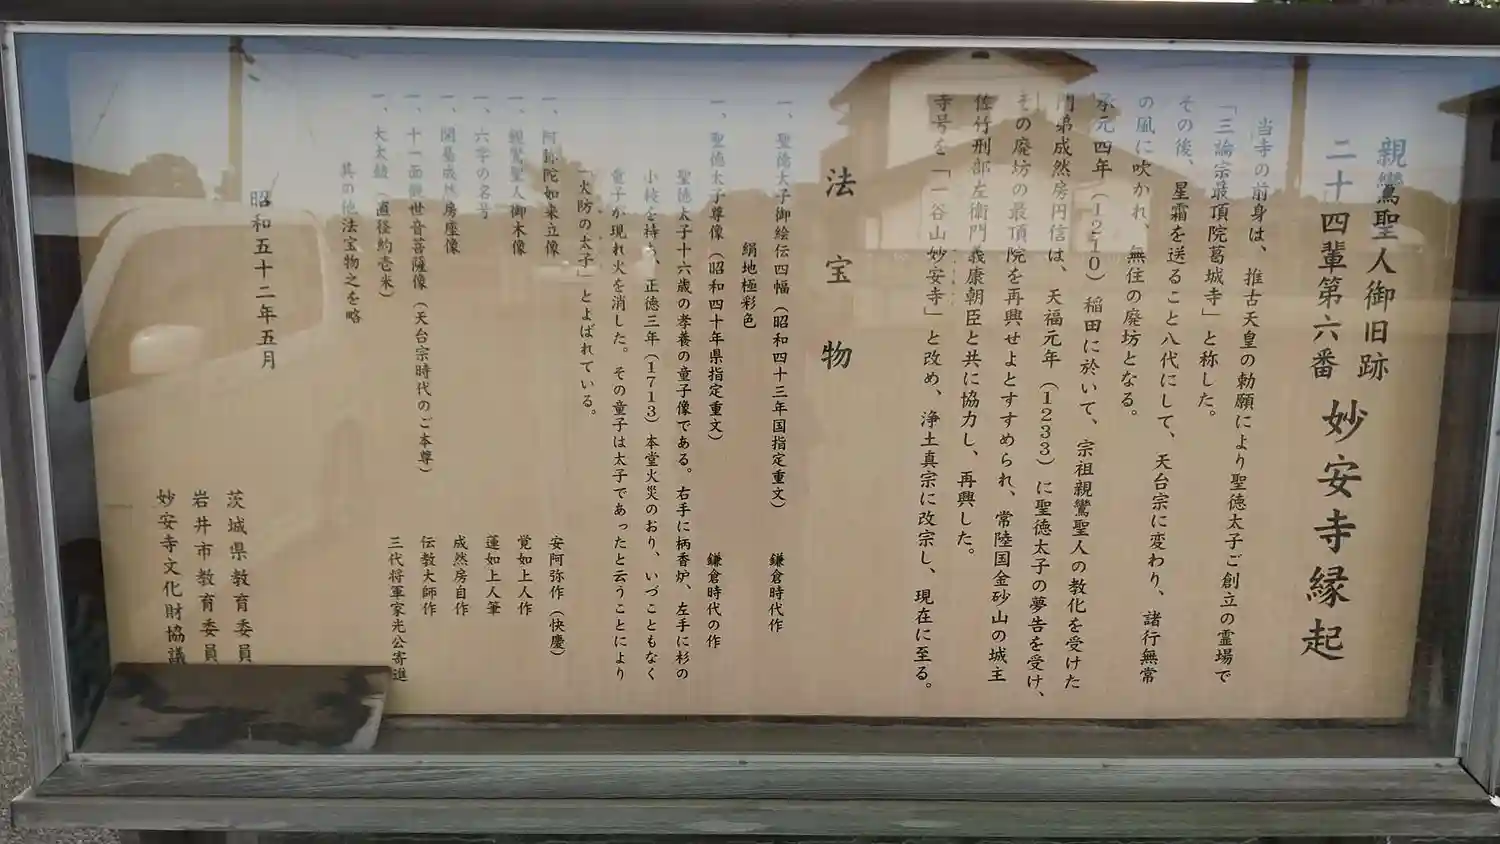 親鸞聖人御旧跡
二十四輩第六番
妙安寺縁起
当寺の前身は、推古天皇の勅願により聖徳太子ご創立の霊場で
「三論宗最頂院葛城寺」と称した。
その後、星霜を送ること八代にして、天台宗に変わり、諸行無常
の風に吹かれ、無住の廃坊となる。
承元四年（1210）稲田に於いて、宗祖親鸞聖人の教化を受けた
門弟成然房円信は、天福元年（1233）に聖徳太子の夢告を受け、
その廃坊の最頂院を再興せよとすすめられ、常陸国金砂山の城主
佐竹刑部左衛門義康朝臣と共に協力し、再興した。
寺号を「一谷山妙安寺」と改め、浄土真宗に改宗し、現在に至る。
法宝物
一、聖徳太子御絵伝四幅（昭和四十三年国指定重文）鎌倉時代作
絹地極彩色
一、聖徳太子尊像（昭和四十年県指定重文）鎌倉時代の作
聖徳太子十六歳の孝養の童子像である。右手に柄香炉、左手に杉の
小枝を持つ、正徳三年（1713）本堂火災のおり、いづこともなく
童子が現れ火を消した。その童子は太子であったと云うことにより
「火防の太子」とよばれている。
一、阿弥陀如来立像 安阿弥作（快慶）
一、親鸞聖人御木像 覚如上人作
一、六字の名号 蓮如上人筆
一、開基成然房座像 成然房自作
一、十一面観世音菩薩像（天台宗時代のご本尊）伝教大師作
一、大太鼓（直径約壱米）三代将軍家光公寄進
其の他法宝物之を略
昭和五十二年五月
茨城県教育委員
岩井市教育委員
妙安寺文化財協議